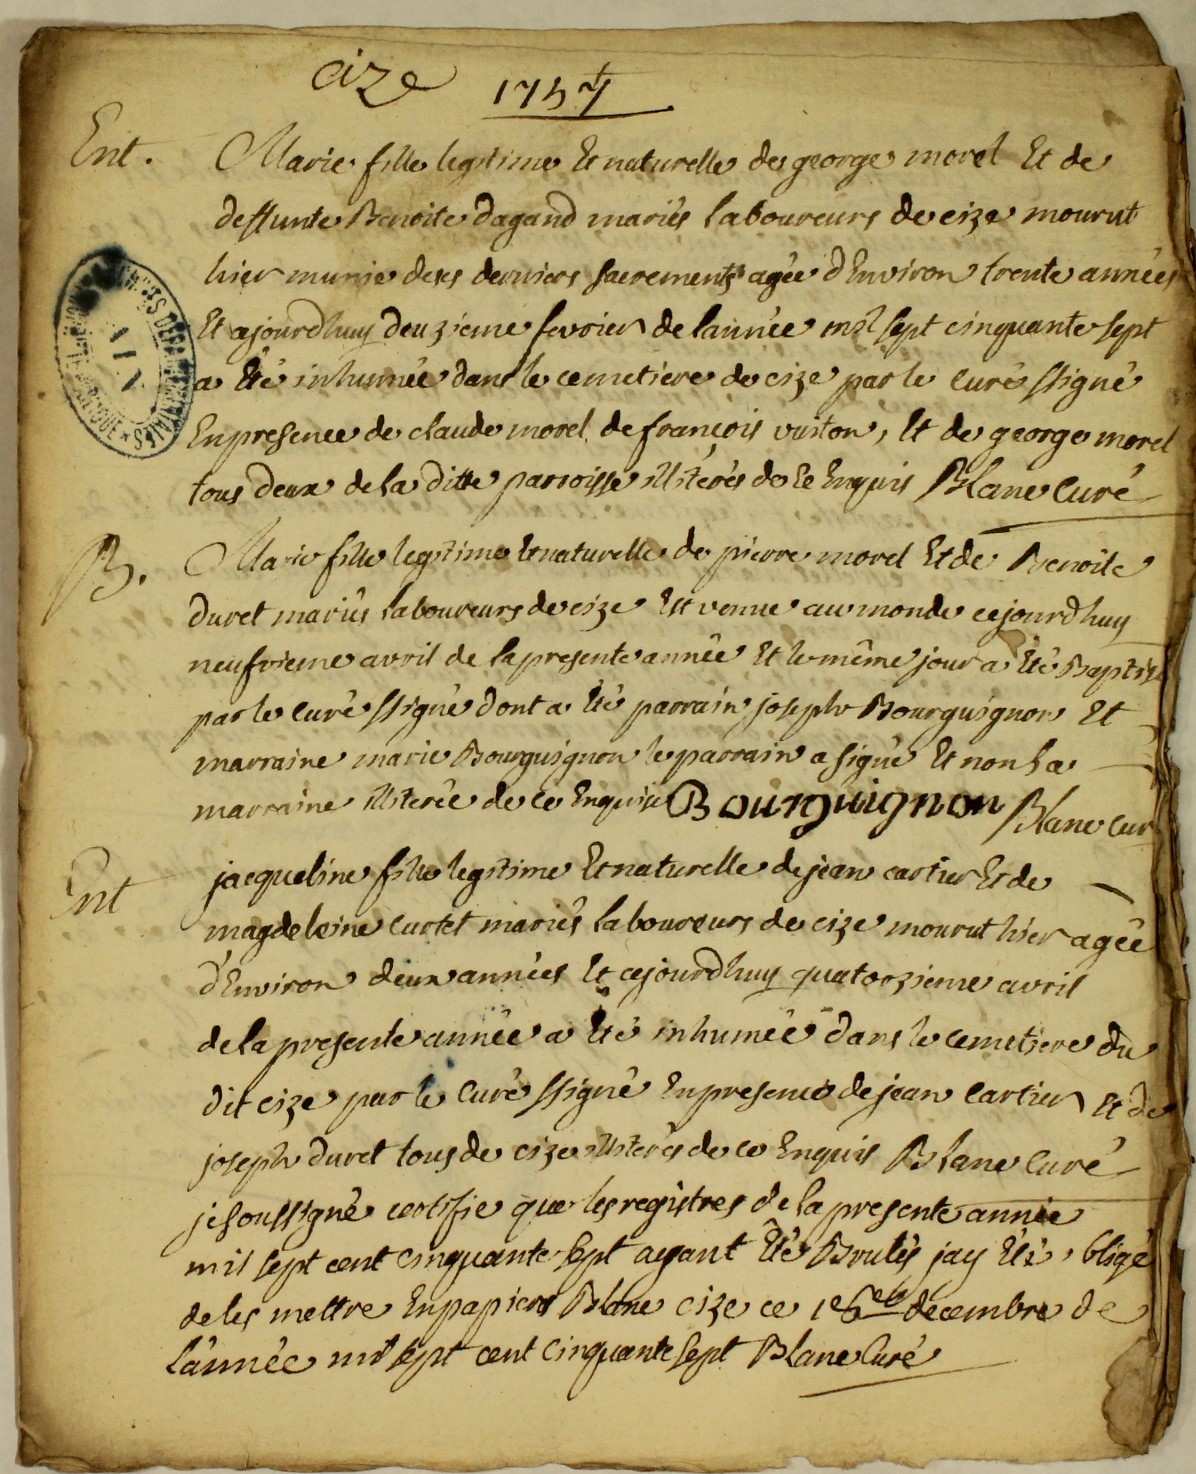 Cize
1757
Ent.
Marie fille legitime Et naturelle de george morel Et de
deffunte Benoite dagand mariés laboureurs de cize mourut
hier munie de ses derniers sacrements agée d'Environ trente années
Et ajourdhuy deuzieme fevrier de l'année mil sept cinquante sept
a Eté inhumée dans le cemetiere de cize par le curé ssigné
En presence de claude morel, de françois vuiton, Et de george morel
tous deux de la ditte parroisse illiterés de ce Enquis Blanc Curé
B.
Marie fille legitime Et naturelle de pierre morel Et de Benoite
duret mariés laboureurs de cize Est venue au monde cejourdhuy
neufvieme avril de la presente année Et le même jour a Eté Baptisé
par le curé ssigné dont a Eté parrain joseph Bourguignon Et
marraine marie Bourguignon le parrain a signé Et non la
marraine illiterée de ce Enquise Bourguignon Blanc Cur
Ent
jacqueline fille legitime Et naturelle de jean cartier Et de
magdeleine curtet mariés laboureurs de cize mourut hier agée
d'Environ deux années Et cejourdhuy quatorzieme avril
de la presente année a Eté inhumée dans le cemetiere du
dit cize par le Curé ssigné En presence de jean Cartier Et de
joseph duret tous de cize illiterés de ce Enquis Blanc Curé
je soussigné certifie que les registres de la presente année
mil sept cent cinquante sept ayant Eté Brulés jay Eté obligé
de les mettre En papier Blanc cize ce decembre de
l'année mil sept cent Cinquante sept Blanc Curé